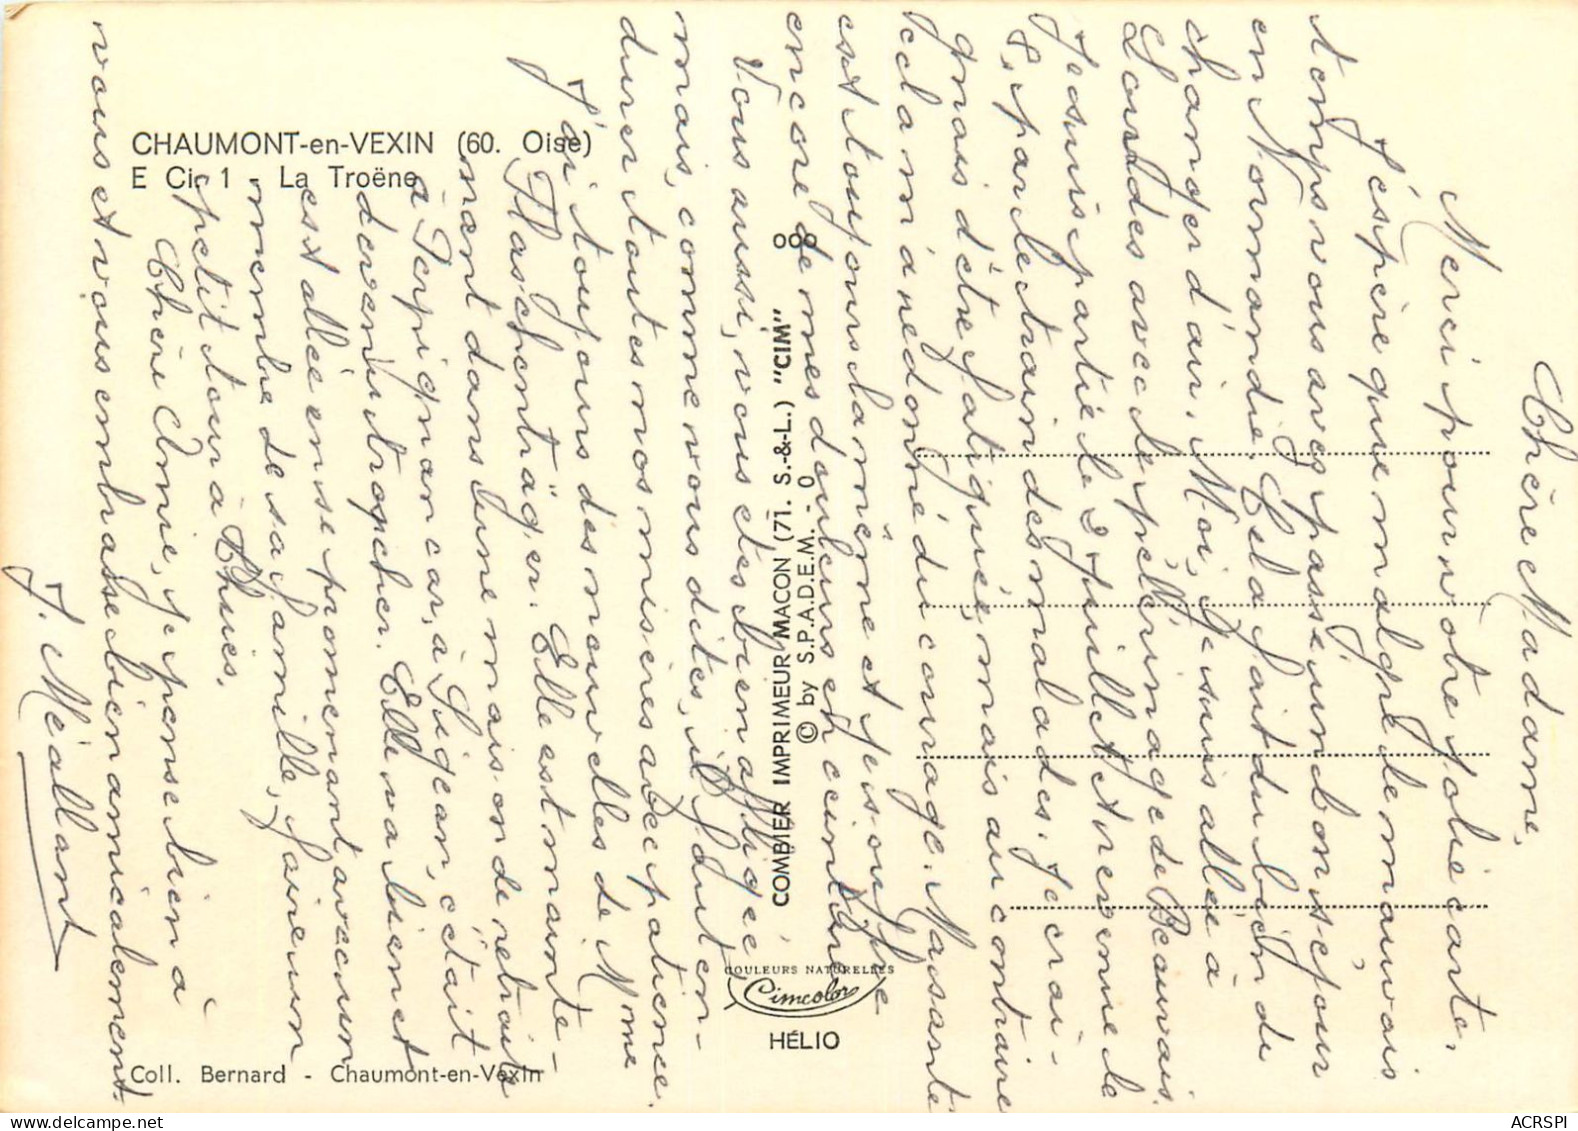 Chère Madame,
Merci pour votre jolie carte.
J'éspère que malgré le mauvais
temps vous avez passé un bon séjour
en Normandie. Cela fait du bien de
changer d'air. Moi, je suis allée à
Lourdes avec le pélérinage de Beauvais.
Je suis partie le 2 juillet et revenue le
8, par le train des malades. Je crai-
gnais d'être fatiguée, mais au contraire
cela m'a redonné du courage. Ma santé
est toujours la même et je souffre
encore de mes douleurs en ceinture.
Vous aussi, vous êtes bien affligée,
mais, comme vous dites, il faut en-
durer toutes nos misères avec patience.
J'ai toujours des nouvelles de Mme
Flaschentrager. Elle est mainte-
nant dans une maison de retraite
à Perpignan car, à Sigean, c'était
devenu trop cher. Elle va bien et
est allée en se promenant avec un
membre de sa famille, faire un
petit tour à Thuès.
Chère Amie, je pense bien à
vous et vous embrasse bien amicalement
J. Méallant
CHAUMONT-en-VEXIN (60. Oise)
E Cic 1 - La Troëne
COMBIER IMPRIMEUR MACON (71. S.-&-L.) "CIM"
© by S.P.A.D.E.M. - 0
COULEURS NATURELLES
Cimcolor
HÉLIO
Coll. Bernard - Chaumont-en-Vexin
ACRSPI